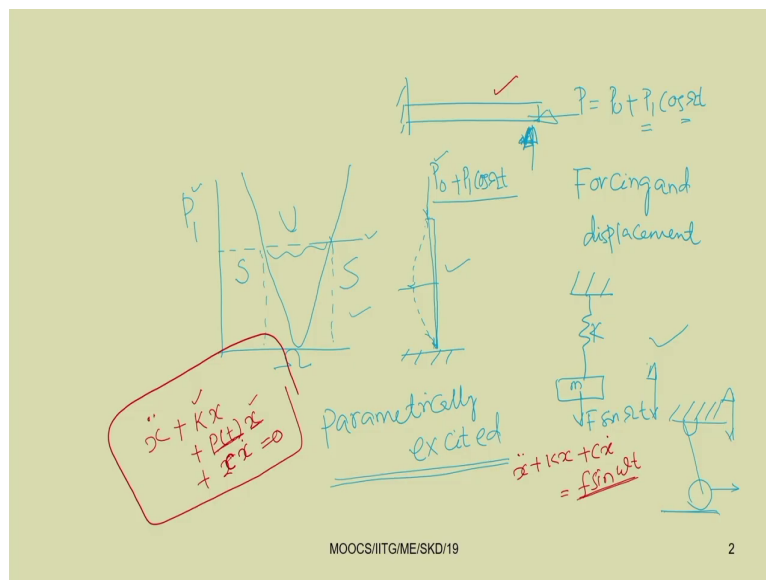 P = P₀ + P₁ cosΩt
P₀ + P₁ cosΩt
Forcing and
displacement
P₁
U
S
S
Ω
K
m
F sinΩt
ẍ + Kx
+ P(t) x
+ cẋ = 0
Parametrically
excited
ẍ + Kx + Cẋ
= f sin ωt
MOOCS/IITG/ME/SKD/19
2